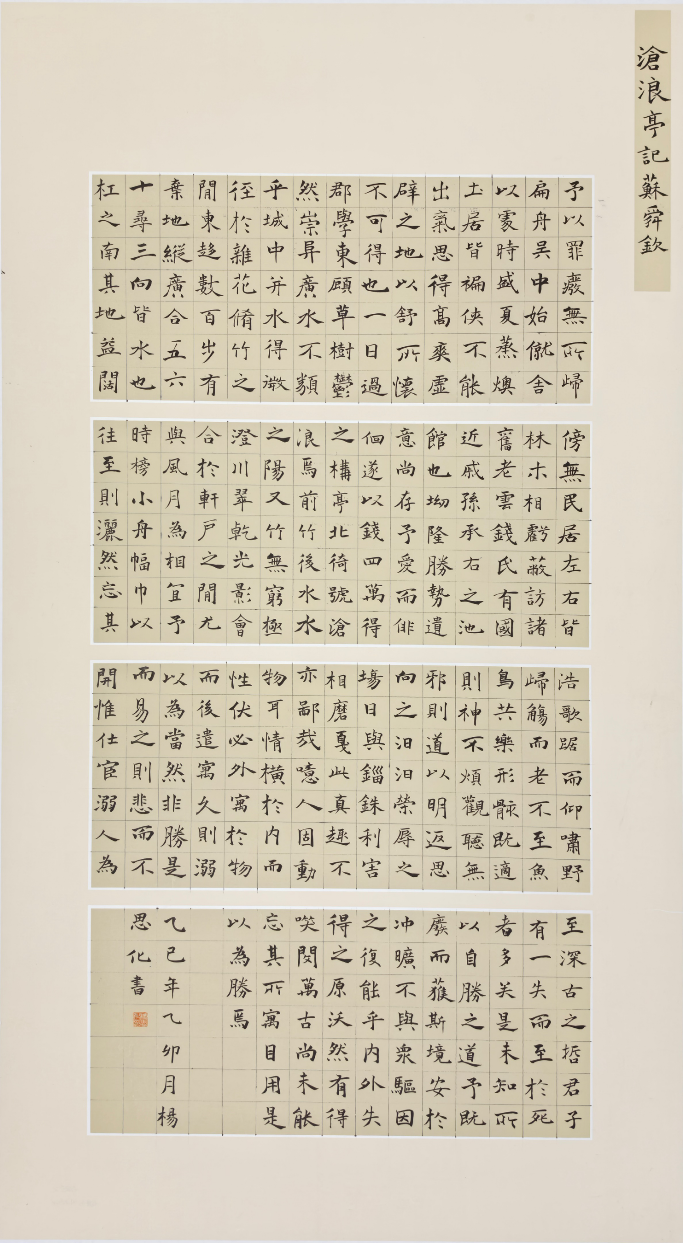 滄浪亭記蘇舜欽
予以罪廢無所歸
扁舟吳中始僦舍
以處時盛夏蒸燠
土居皆褊俠不能
出氣思得高爽虛
辟之地以舒所懷
不可得也一日過
郡學東顧草樹鬱
然崇阜廣水不類
乎城中并水得微
徑於雜花脩竹之
閒東趍數百步有
棄地縱廣合五六
十尋三向皆水也
杠之南其地益闊
傍無民居左右皆
林木相虧蔽訪諸
舊老雲錢氏有國
近戚孫承右之池
館也坳隆勝勢遺
意尚存予愛而俳
佪遂以錢四萬得
之構亭北碕號滄
浪焉前竹後水水
之陽又竹無窮極
澄川翠乾光影會
合於軒戶之間尤
與風月為相宜予
時榜小舟幅巾以
往至則灑然忘其
浩歌踞而仰嘯野
歸觴而老不至魚
鳥共樂形骸既適
則神不煩觀聽無
邪則道以明返思
向之汩汩榮辱之
場日與錙銖利害
相磨戛此真趣不
亦鄙哉噫人固動
物耳情橫於內而
性伏必外寓於物
而後遣寓久則溺
以為當然非勝是
而易之則悲而不
開惟仕宦溺人為
至深古之哲君子
有一失而至於死
者多矣是未知所
以自勝之道予既
廢而獲斯境安於
沖曠不與眾驅因
之復能乎內外失
得之原沃然有得
笑閔萬古尚未能
忘其所寓目用是
以為勝焉
乙巳年乙卯月楊
思化書